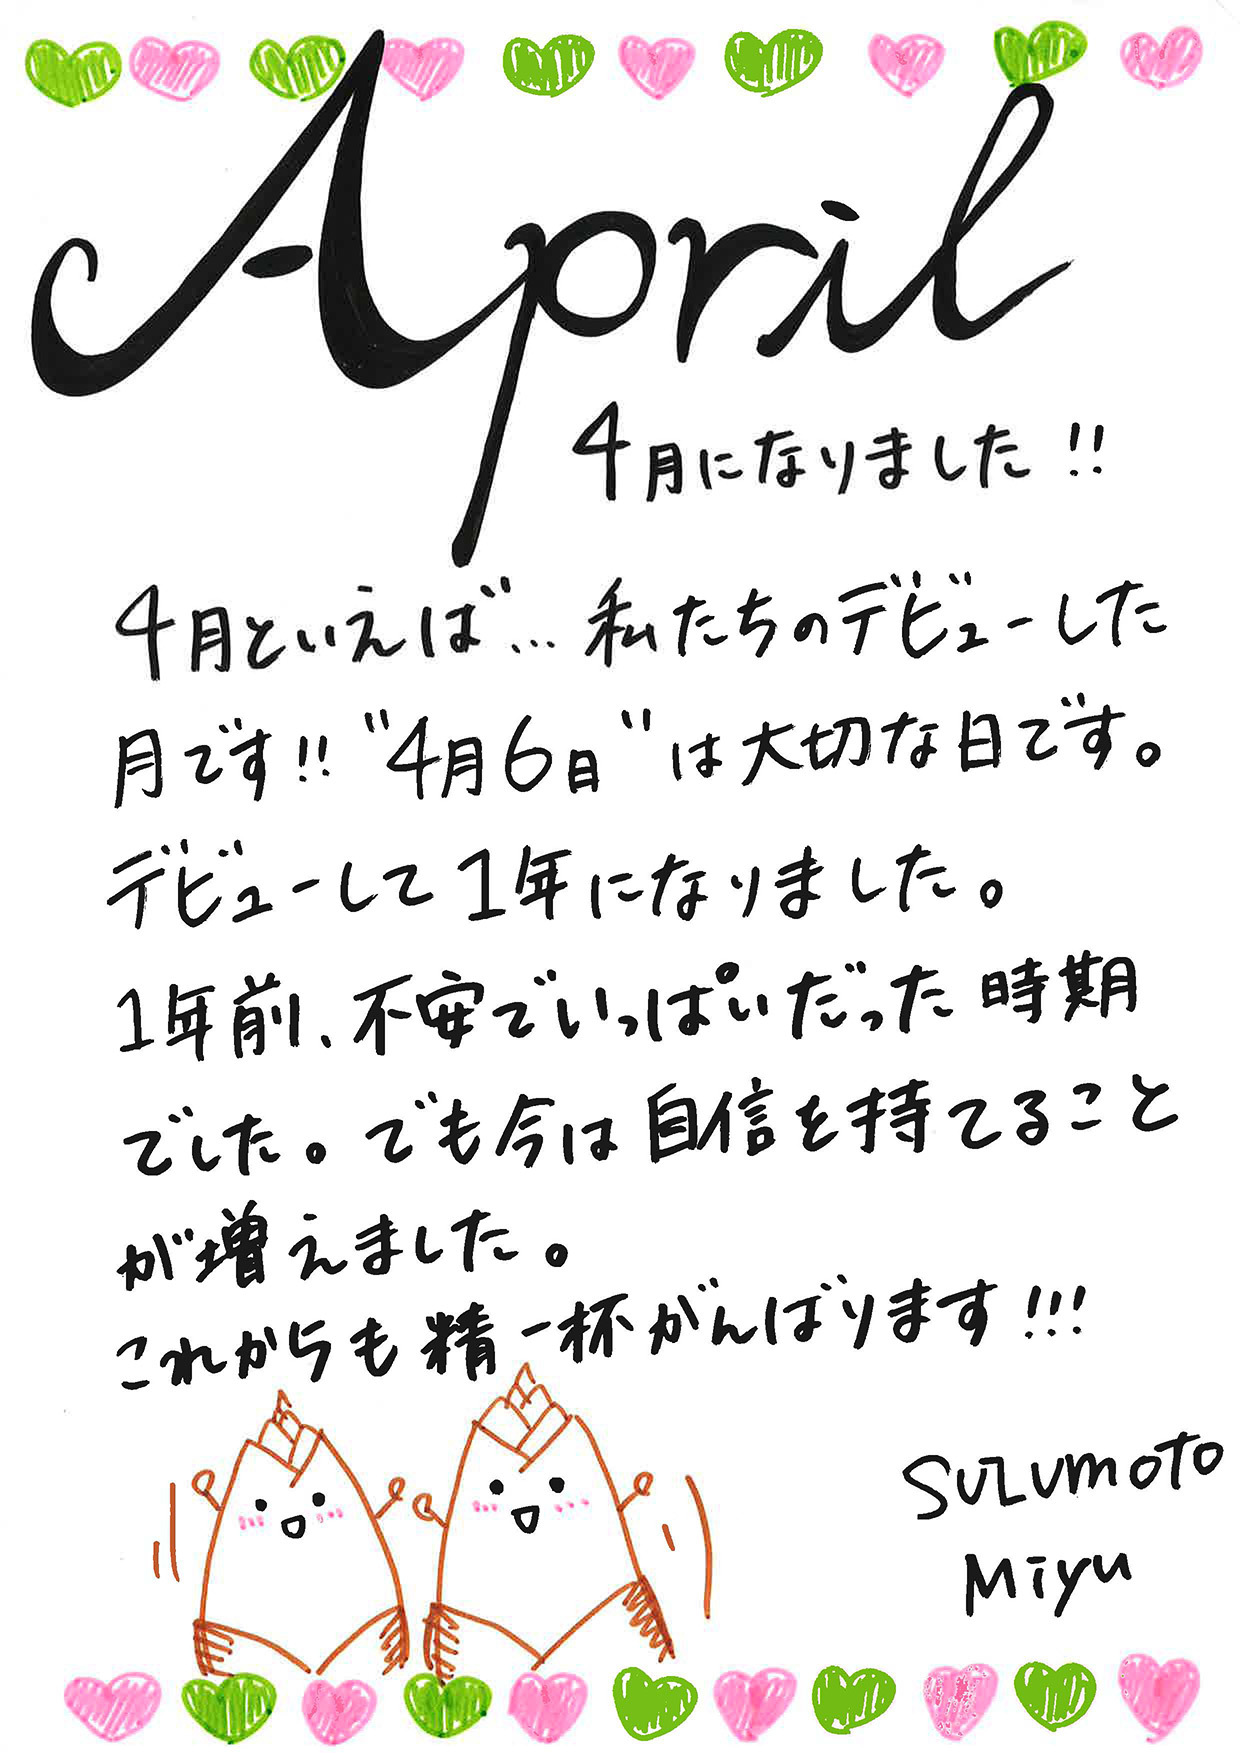 April
4月になりました!!
4月といえば…私たちのデビューした
月です!!"4月6日"は大切な日です。
デビューして1年になりました。
1年前、不安でいっぱいだった時期
でした。でも今は自信を持てること
が増えました。
これからも精一杯がんばります!!!
SUZUMOTO
Miyu